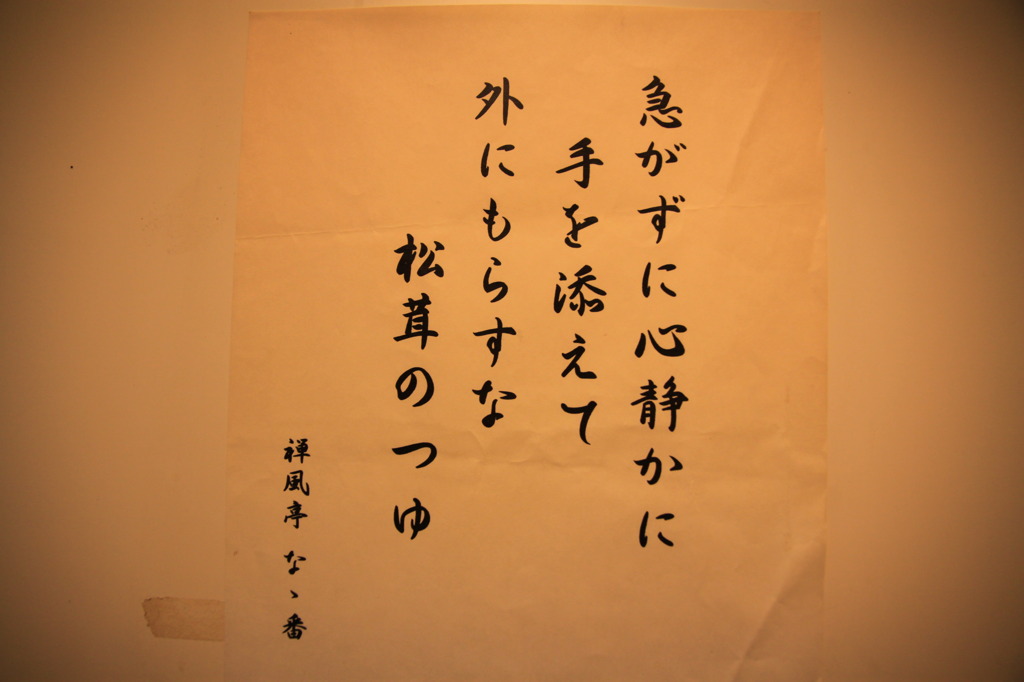 急がずに心静かに
手を添えて
外にもらすな
松茸のつゆ
禅風亭 なゝ番